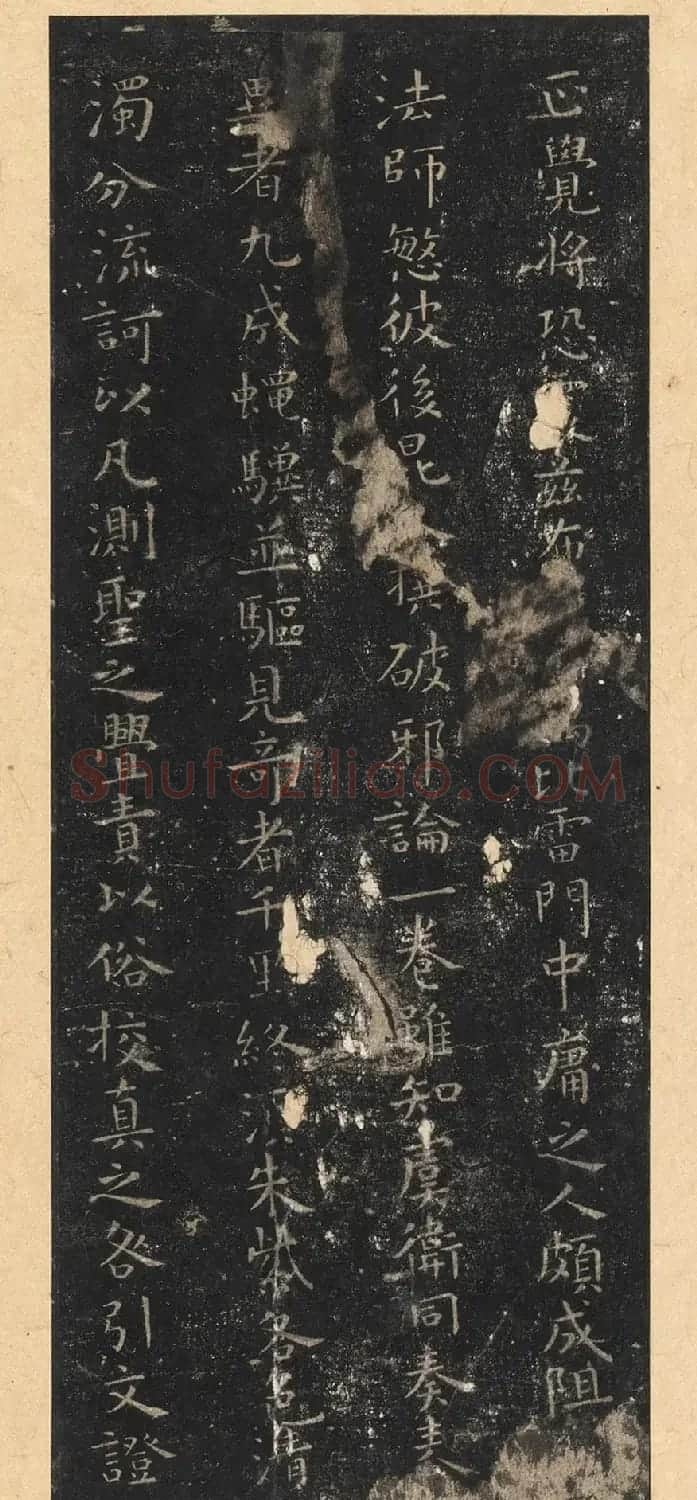 正覺將恐茲布雷門中庸之人頗成阻
法師愍彼後昆撰破邪論一卷雖知虞衛同奏表
異者九成蠅驥並驅見奇者千里終須朱紫各色清
濁分流訶以凡測聖之舋責以俗挍真之咎引文證
Shufaziliao.COM